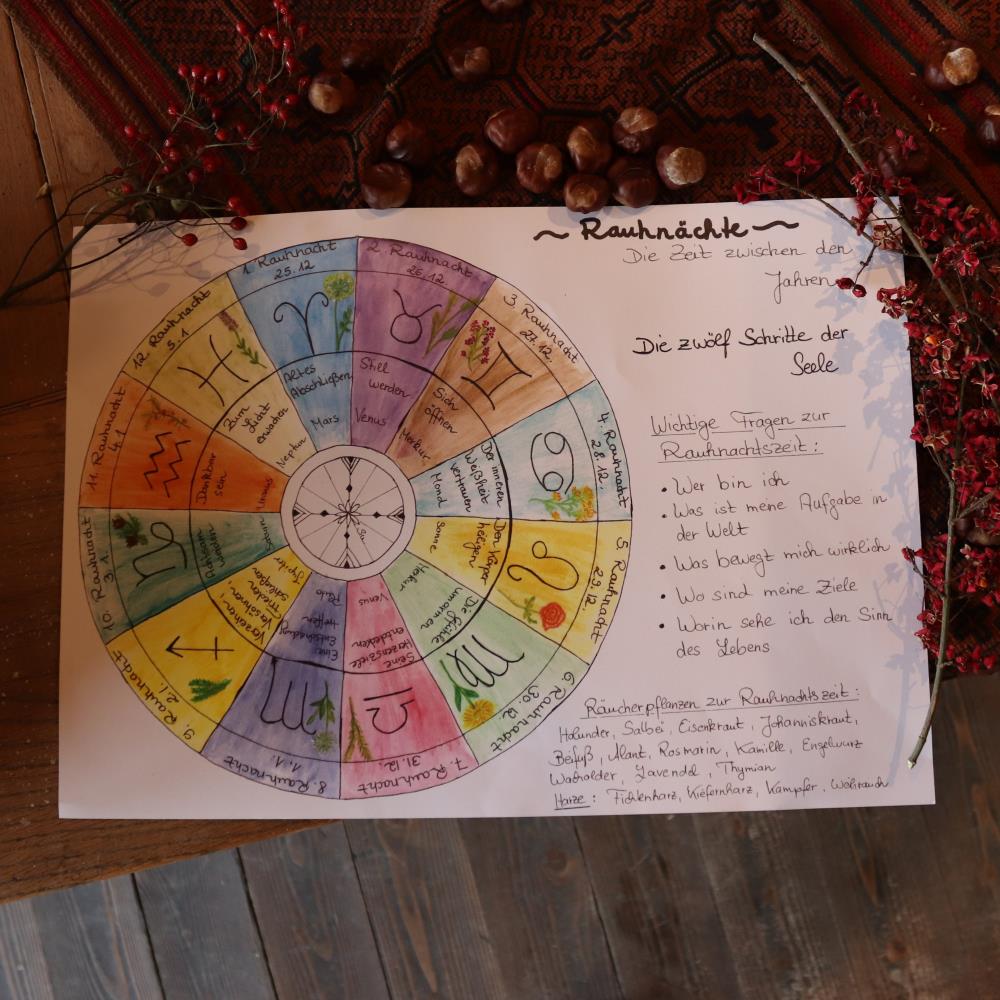 ~ Rauhnächte ~
Die Zeit zwischen den
Jahren
Die zwölf Schritte der
Seele
Wichtige Fragen zur
Rauhnachtszeit:
• Wer bin ich
• Was ist meine Aufgabe in
der Welt
• Was bewegt mich wirklich
• Wo sind meine Ziele
• Worin sehe ich den Sinn
des Lebens
Räucherpflanzen zur Rauhnachtszeit:
Holunder, Salbei, Eisenkraut, Johanniskraut,
Beifuß, Alant, Rosmarin, Kamille, Engelwurz
Wacholder, Lavendel, Thymian
Harze: Fichtenharz, Kiefernharz, Kampfer, Weihrauch
1. Rauhnacht
25.12
Altes
Abschließen
Mars
2. Rauhnacht
26.12.
Still
werden
Venus
3. Rauhnacht
27.12.
Sich
öffnen
Merkur
4. Rauhnacht
28.12.
Der inneren
Weißheit
vertrauen
Mond
5. Rauhnacht
29.12.
Den Körper
heiligen
Sonne
6. Rauhnacht
30.12.
Die Gefühle
umarmen
Merkur
7. Rauhnacht
31.12.
Seine
Herzensziele
entdecken
Venus
8. Rauhnacht
1.1.
Eine
Entscheidung
treffen
Pluto
9. Rauhnacht
2.1.
Verzeihen,
Versöhnen,
Frieden
schließen
Jupiter
10. Rauhnacht
3.1.
Saturn
11. Rauhnacht
4.1
Dankbar
sein
Uranus
12. Rauhnacht
5.1
Zum
Licht
erwachen
Neptun